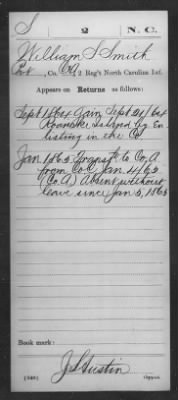 S 2 N. C.
William S Smith
Co. A, 2 Reg't North Carolina Inf.
Appears on Returns as follows:
Sept 1864 Gain Sept 21/64
Roanoke Island By En
listing in the Co
Jan 1865 Transf to Co. A
from Co Jan 4/65
(Co. A) Absent without
leave since Jan 5, 1865
Book mark:
J L Austin
Copyist.